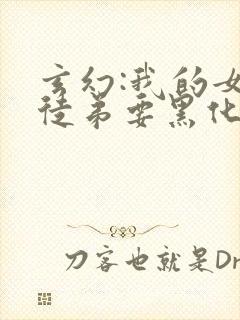 玄幻:我的女
徒弟要黑化
刀客也就是Dr